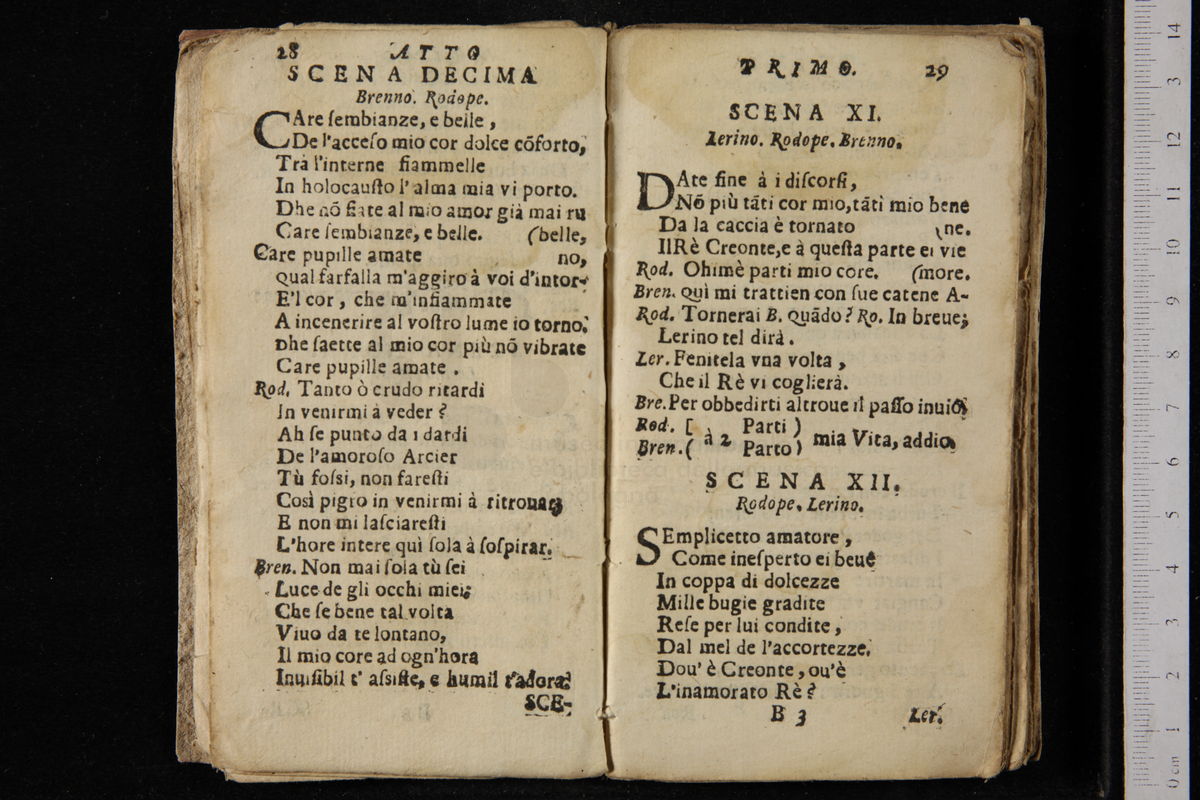 28 ATTO
SCENA DECIMA
Brenno. Rodope.
CAre ſembianze, e belle,
De l'acceſo mio cor dolce cõforto,
Trà l'interne fiammelle
In holocauſto l'alma mia vi porto.
Dhe nõ ſiate al mio amor già mai ru
Care ſembianze, e belle. (belle,
Care pupille amate no,
Qual farfalla m'aggiro à voi d'intor-
E'l cor, che m'infiammate
A incenerire al voſtro lume io torno.
Dhe ſaette al mio cor più nõ vibrate
Care pupille amate.
Rod. Tanto ò crudo ritardi
In venirmi à veder?
Ah ſe punto da i dardi
De l'amoroſo Arcier
Tù foſsi, non fareſti
Così pigro in venirmi à ritrouar,
E non mi laſciareſti
L'hore intere quì ſola à ſoſpirar.
Bren. Non mai ſola tù ſei
Luce de gli occhi miei;
Che ſe bene tal volta
Viuo da te lontano,
Il mio core ad ogn'hora
Inuiſibil t'aſsiſte, e humil t'adora.
SCE-
PRIMO. 29
SCENA XI.
Lerino. Rodope. Brenno.
DAte fine à i diſcorſi,
Nõ più tãti cor mio, tãti mio bene
Da la caccia è tornato (ne.
Il Rè Creonte, e à queſta parte ei vie
Rod. Ohimè parti mio core. (more.
Bren. Quì mi trattien con ſue catene A-
Rod. Tornerai B. Quãdo? Ro. In breue;
Lerino tel dirà.
Ler. Fenitela vna volta,
Che il Rè vi coglierà.
Bre. Per obbedirti altroue il paſſo inuio.
Rod. [ à 2 Parti ) mia Vita, addio.
Bren. ( Parto )
SCENA XII.
Rodope. Lerino.
SEmplicetto amatore,
Come ineſperto ei beue
In coppa di dolcezze
Mille bugie gradite
Reſe per lui condite,
Dal mel de l'accortezze.
Dou' è Creonte, ou'è
L'inamorato Rè?
B 3 Ler.
14
13
12
11
10
9
8
7
6
5
4
3
2
1
0 cm